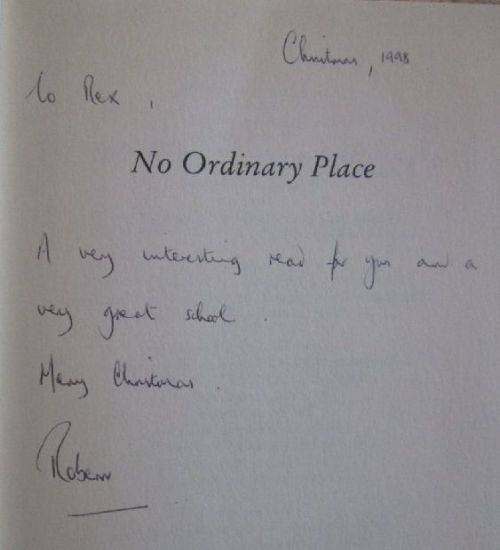 Christmas, 1998
To Rex,
No Ordinary Place
A very interesting read for you and a
very great school.
Merry Christmas.
Robert